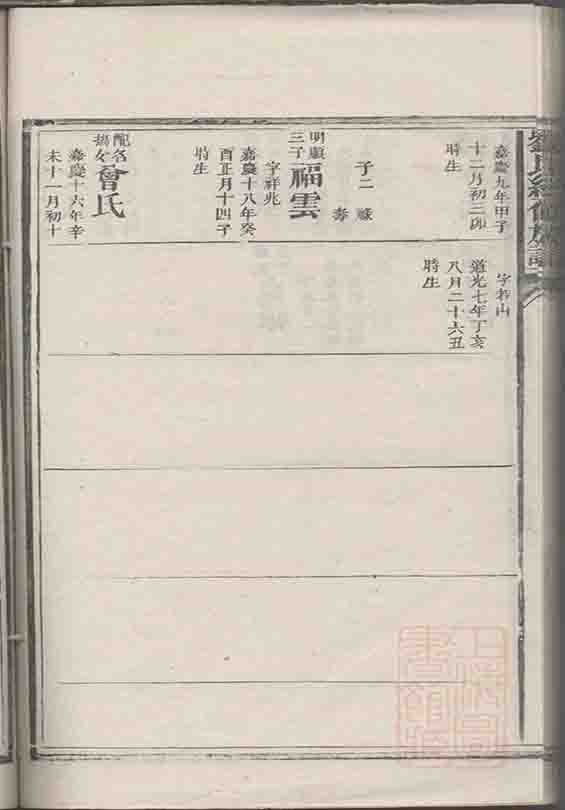 嘉慶九年甲子
十二月初三卯
時生
子二
祿
壽
明顯
三子
福雲
字祥兆
嘉慶十八年癸
酉正月十四子
時生
配名
曾氏
嘉慶十六年辛
未十一月初十
字若山
道光七年丁亥
八月二十六丑
時生